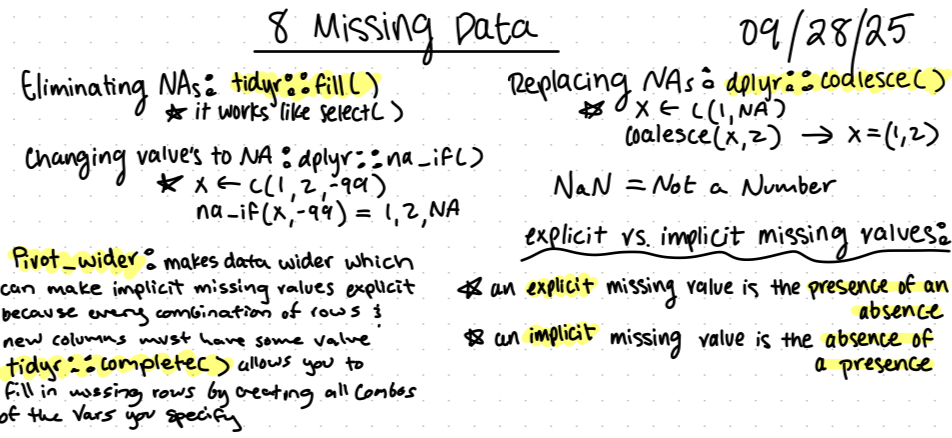 8 Missing Data
09/28/25
Eliminating NAs: tidyr::fill()
★ it works like select()
Changing value's to NA: dplyr::na_if()
★ x ← c(1, 2, -99)
na_if(x, -99) = 1, 2, NA
Pivot_wider: makes data wider which
can make implicit missing values explicit
because every combination of rows &
new columns must have some value
tidyr::complete() allows you to
fill in missing rows by creating all combos
of the vars you specify
Replacing NAs: dplyr::coalesce()
★ x ← c(1, NA)
coalesce(x, 2) → x = (1, 2)
NaN = Not a Number
explicit vs. implicit missing values:
★ an explicit missing value is the presence of an
absence
★ an implicit missing value is the absence of
a presence